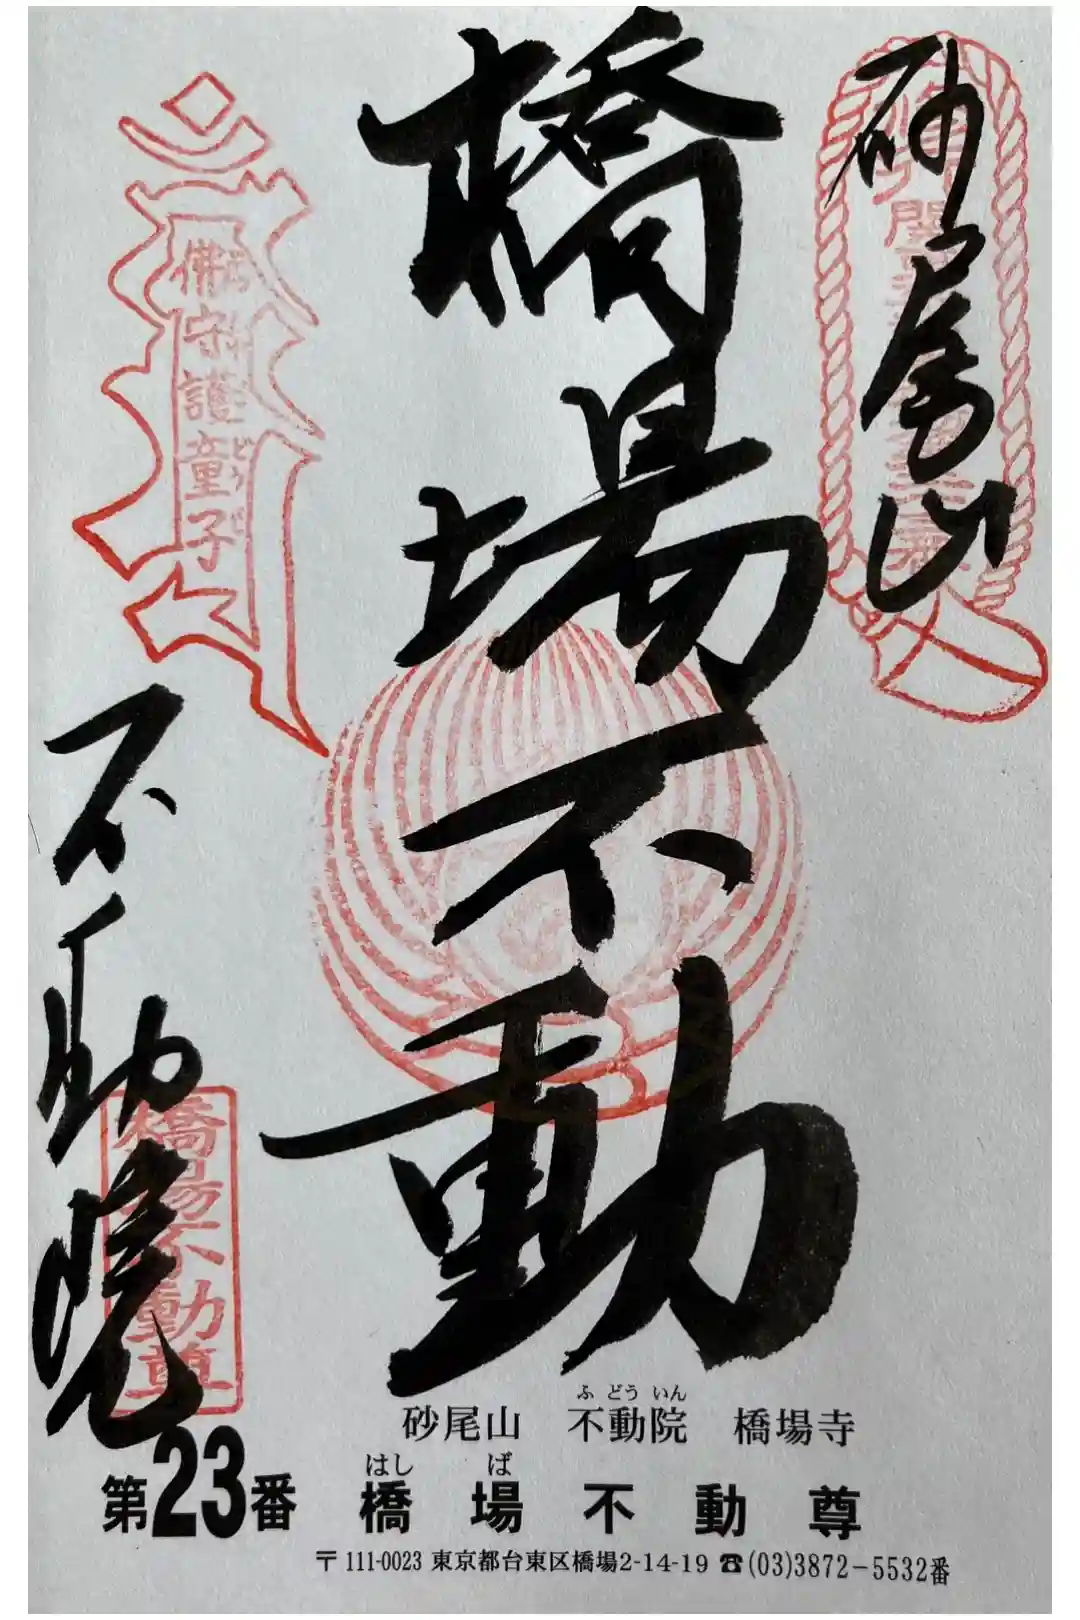 砂尾山
橋場不動
不動院
佛守護童子
橋場不動尊
ふどういん
砂尾山 不動院 橋場寺
はしば
第23番 橋場不動尊
〒111-0023 東京都台東区橋場2-14-19 ☎(03)3872-5532番